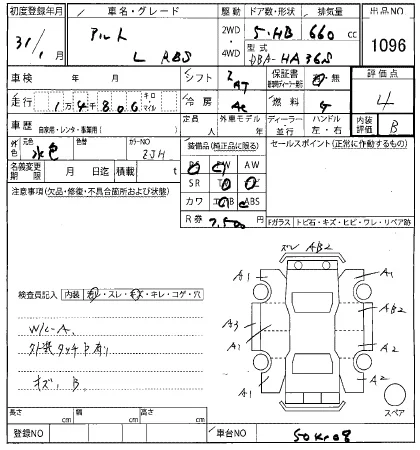 初度登録年月 車名・グレード 駆動 ドア数・形状 排気量 出品NO
31/1 アルト L ABS 2WD 4WD 5・HB 660 cc 1096
型式 DBA-HA36S
車検 年 月 シフト AT 保証書 無 評価点
走行 1万4千800 キロ マイル 冷房 AC 燃料 4
車歴 自家用・レンタ・事業用( ) 定員 人 外車モデル 年 ディーラー 並行 ハンドル 左・右 内装評価 B
色 元色 水色 カラーNO ZJH 装備品(純正品に限る) セールスポイント(正常に作動するもの)
名義変更期限 月 日迄 積載 t PS PW
SR
注意事項(欠品・修復・不具合箇所および状態) カワ ABS
R券 7,500 Fガラス トビ石・キズ・ヒビ・ワレ・リペア跡
ズレ AB2
A1 A1
検査員記入 内装 ・スレ・キズ・キレ・コゲ・穴
AB2
W/C-A A3
外装タッチP有り A1 A2
キズ、B A1 A2
スペア
長さ cm 幅 cm 高さ cm
登録NO 車台NO